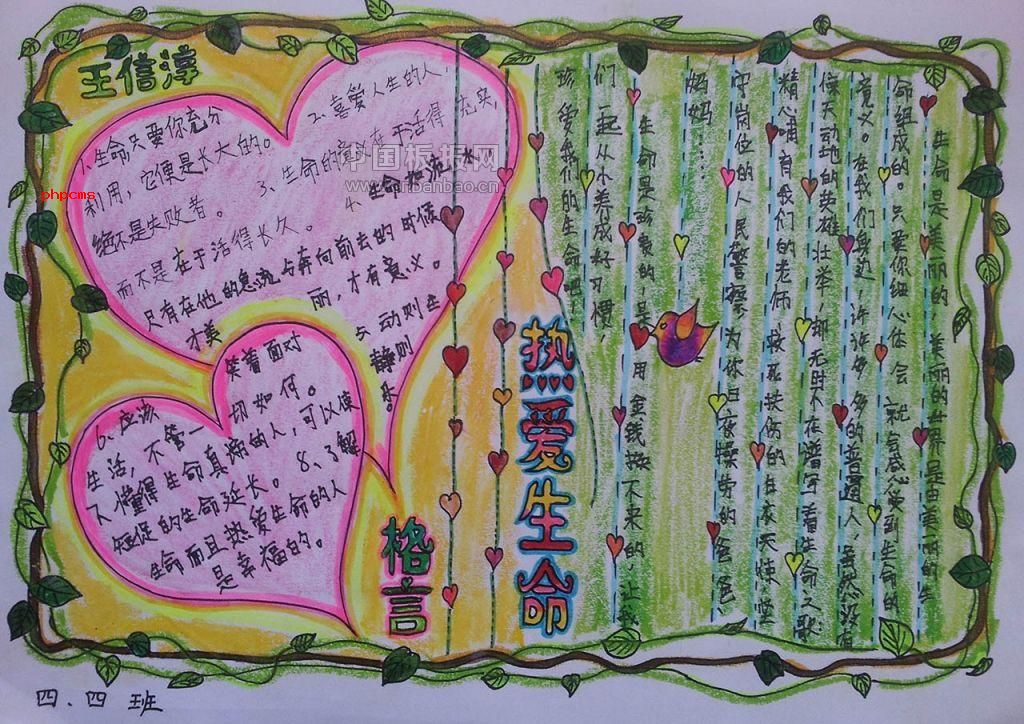 王信淳
1.生命只要你充分
利用，它便是长大的。
2.喜爱人生的人，
绝不是失败者。
3、生命的意义在于活得充实，
而不是在于活得长久。
4.生命如流水
只有在他的急流与奔向前去的时候
才美丽，才有意义。
动则
静则
6、应该笑着面对
生活，不管一切如何。
7、懂得生命真谛的人，可以使
短促的生命延长。
8、了解
生命而且热爱生命的人
是幸福的。
格言
热爱生命
生命是美丽的 美丽的世界是由美丽的生
命组成的。只要你细心体会 就会感受到生命的
意义。在我们身边，许许多多的普通人，虽然没有
惊天动地的英雄壮举 却无时不在谱写着生命之歌
精心哺育我们的老师 救死扶伤的白衣天使 坚
守岗位的人民警察 为你日夜操劳的爸爸、
妈妈……
生命是宝贵的是用金钱换不来的，让我
们一起从小养成好习惯，
珍爱我们的生命吧！
四.四 班
中国板报网
www.banbanbao.cn
phpcms